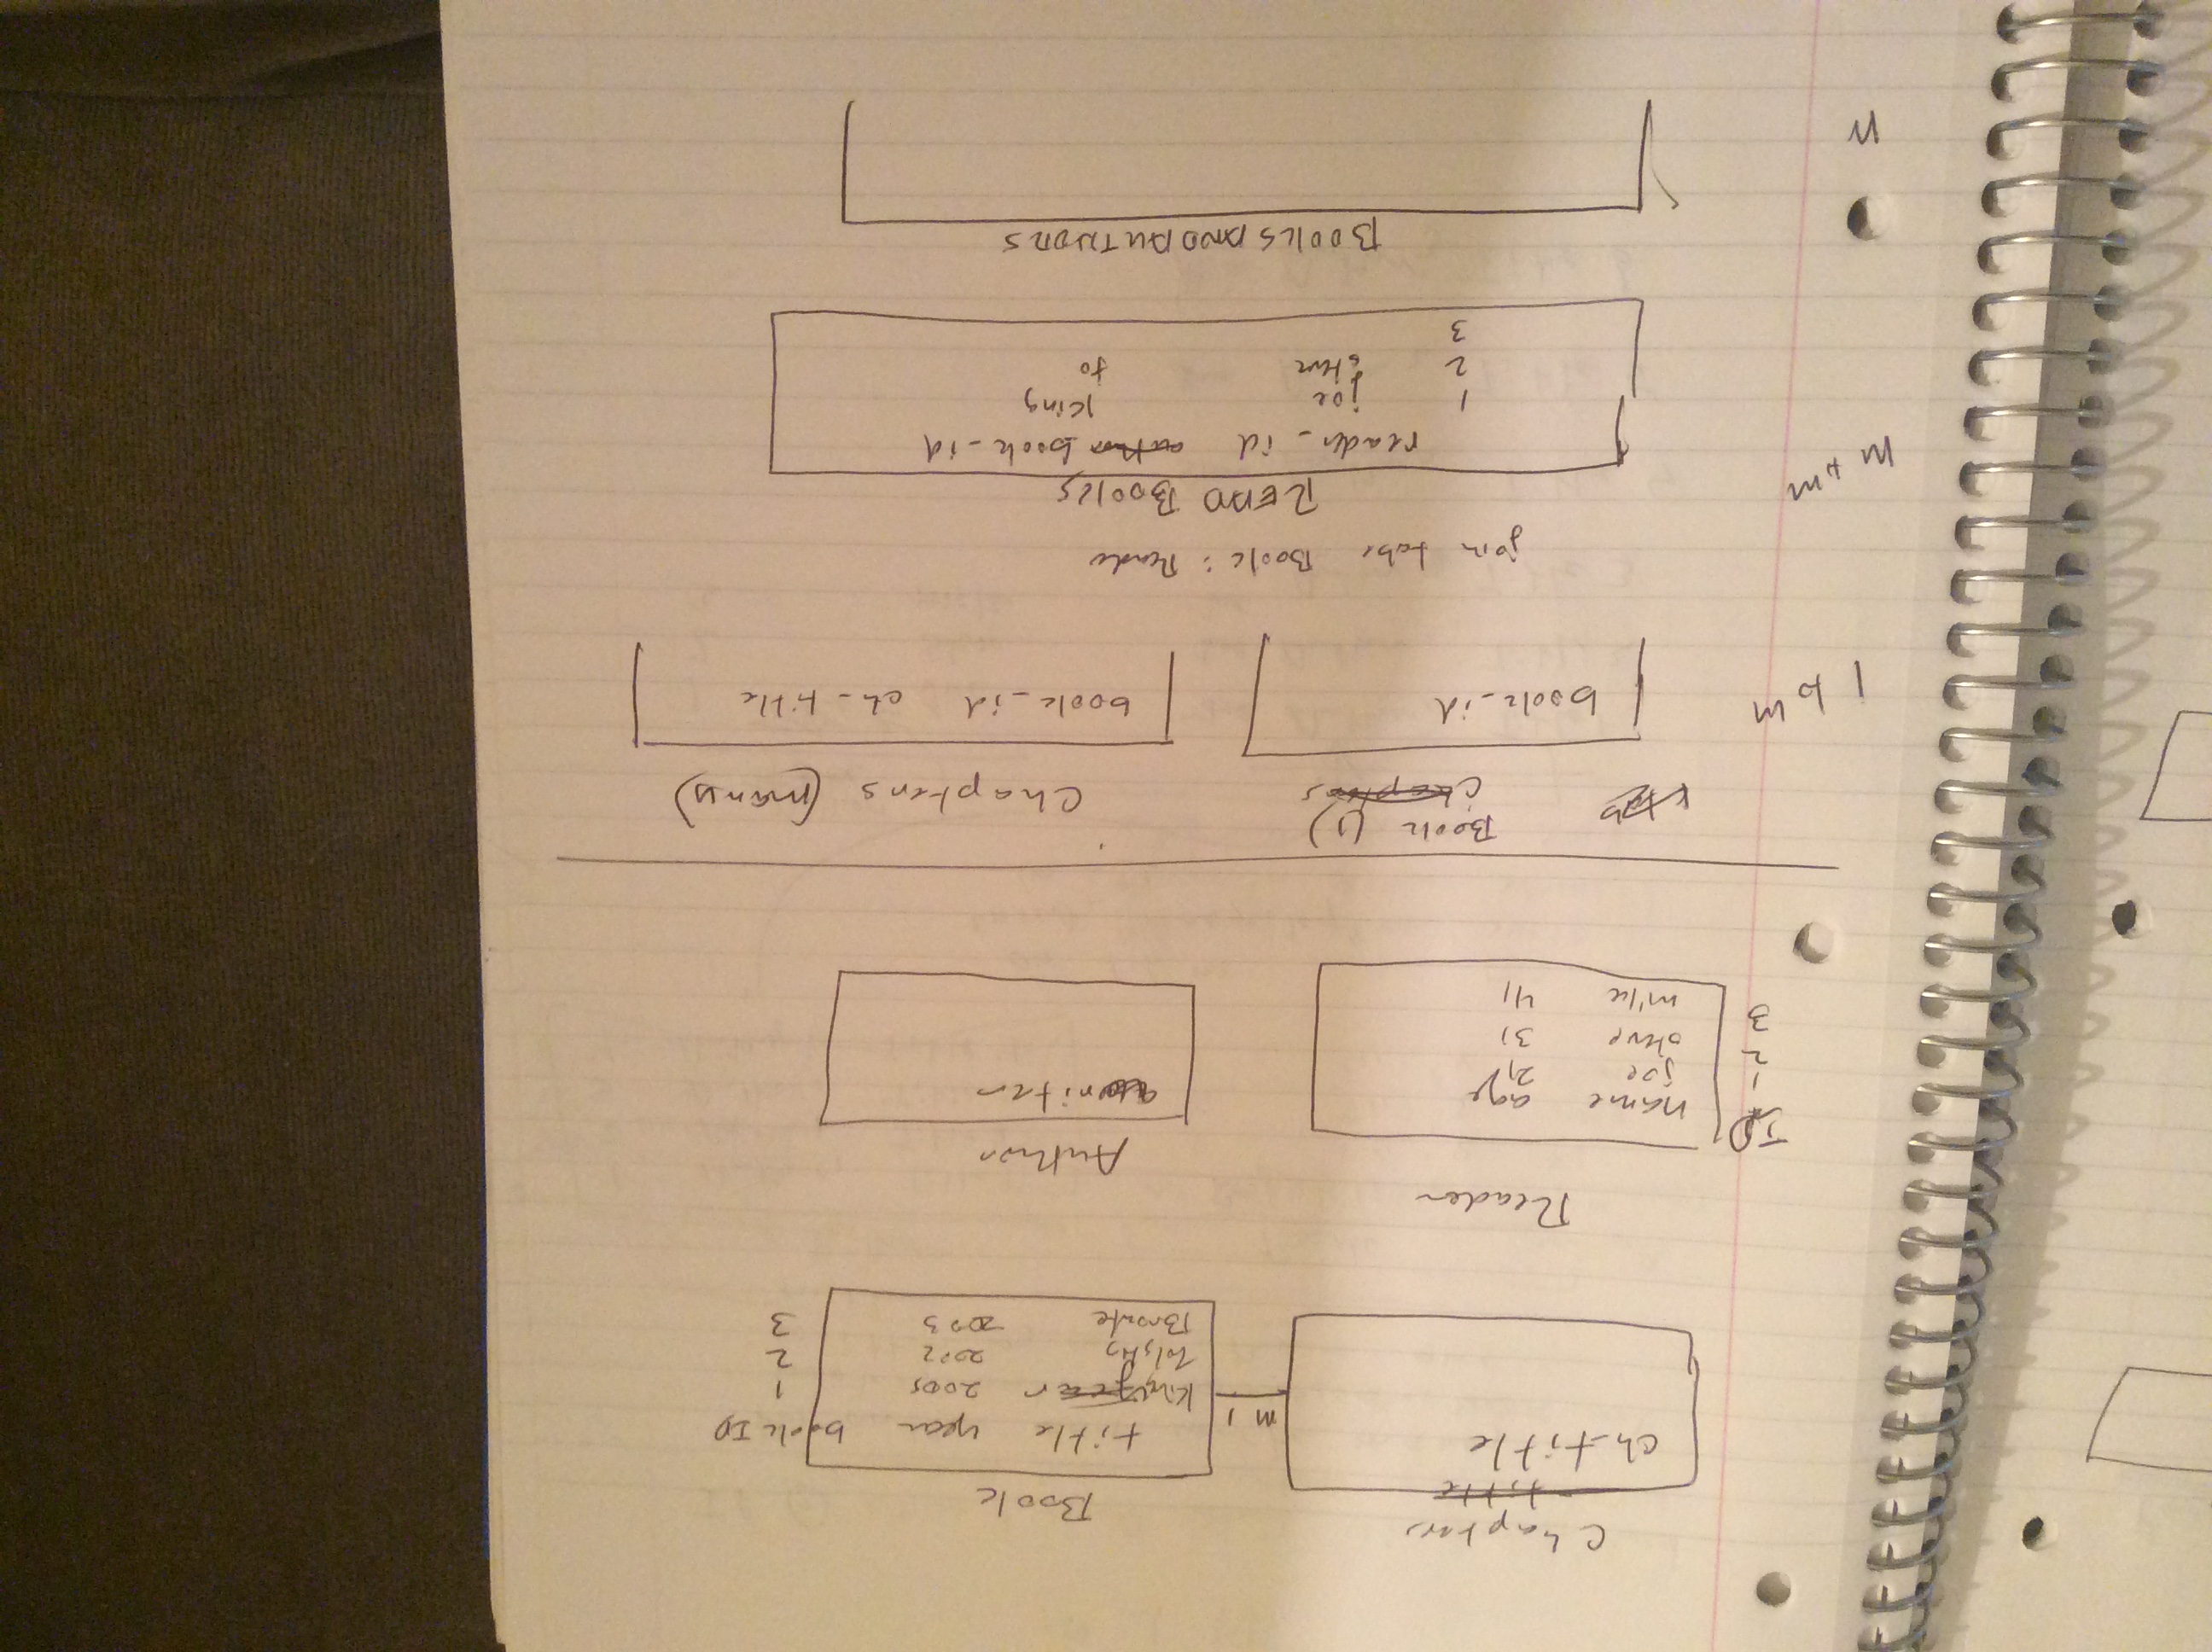 Chapters
title
ch_title
m 1
Book
title year book ID
King year 2005 1
Tolstoy 2002 2
Bronte 2003 3
Reader
ID name age
1 joe 21
2 steve 31
3 mike 41
Author
writer
Book (1)
chapters
Chapters (many)
1 to m
book_id
book_id ch_title
join table Book : Reader
READ BOOKS
m to m
reader_id author book_id
1 joe King
2 steve to
3
BOOKSANDAUTHORS